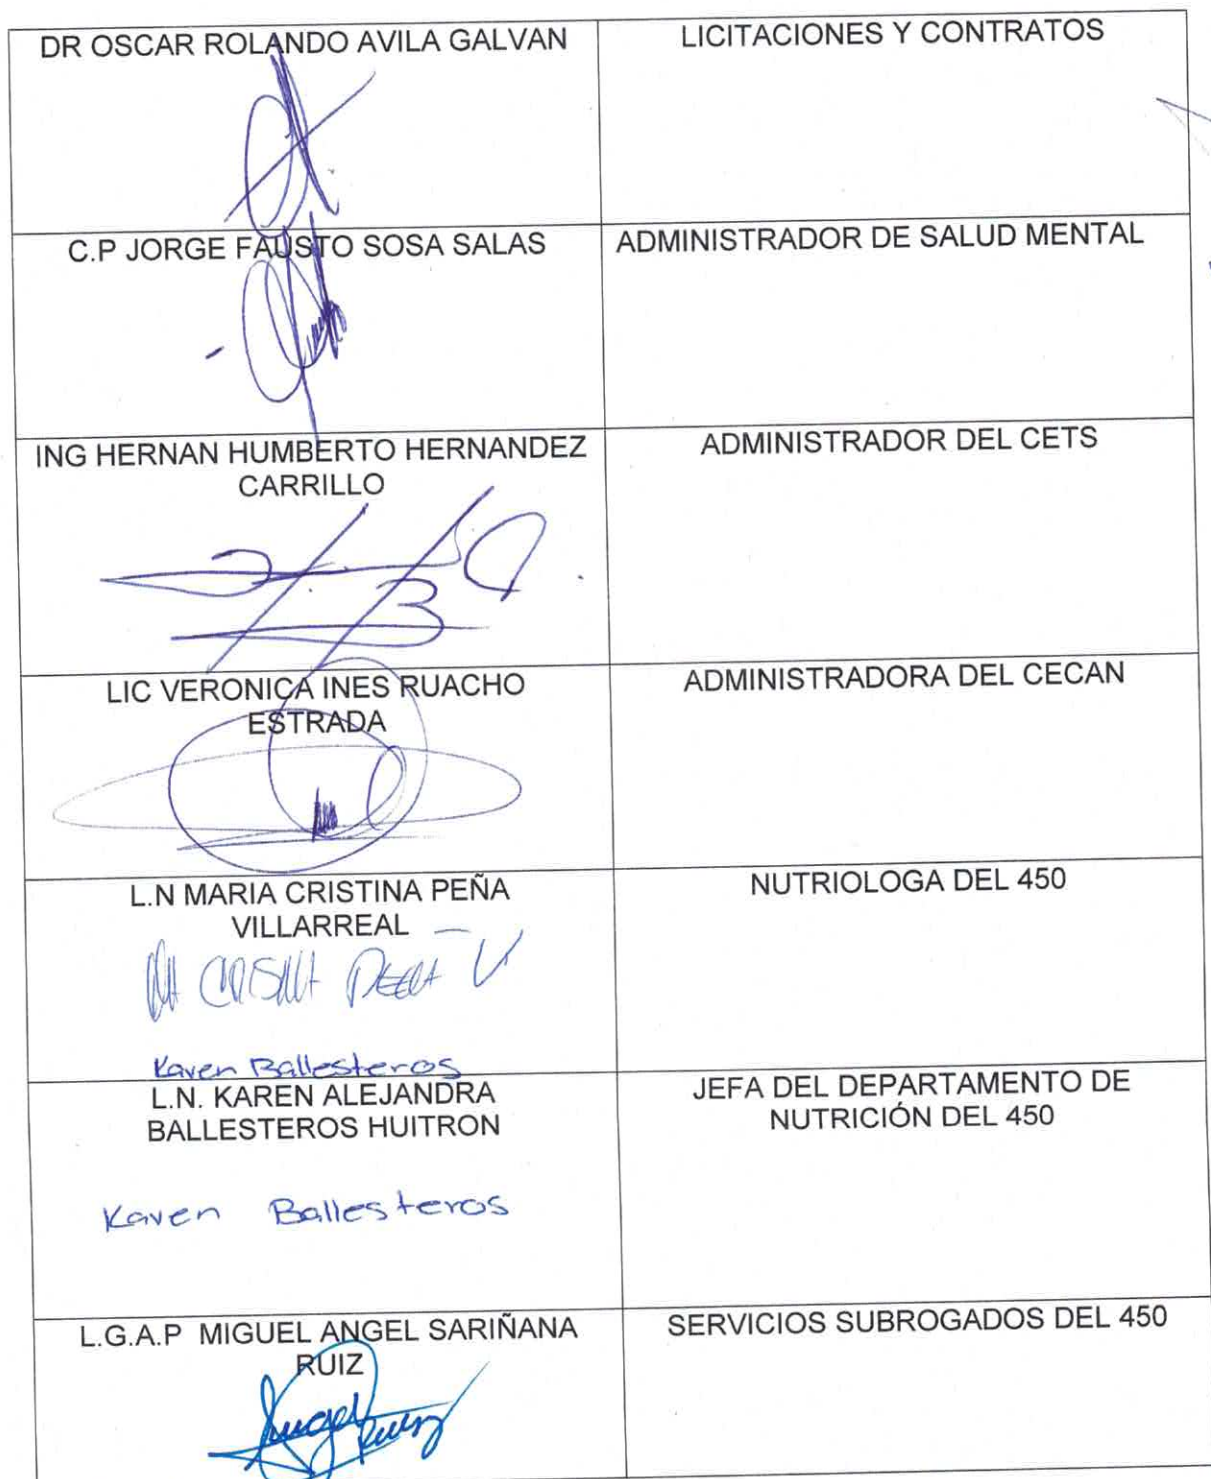 DR OSCAR ROLANDO AVILA GALVAN
LICITACIONES Y CONTRATOS
C.P JORGE FAUSTO SOSA SALAS
ADMINISTRADOR DE SALUD MENTAL
ING HERNAN HUMBERTO HERNANDEZ
CARRILLO
ADMINISTRADOR DEL CETS
LIC VERONICA INES RUACHO
ESTRADA
ADMINISTRADORA DEL CECAN
L.N MARIA CRISTINA PEÑA
VILLARREAL
NUTRIOLOGA DEL 450
Karen Ballesteros
L.N. KAREN ALEJANDRA
BALLESTEROS HUITRON
JEFA DEL DEPARTAMENTO DE
NUTRICIÓN DEL 450
Karen Ballesteros
L.G.A.P MIGUEL ANGEL SARIÑANA
RUIZ
SERVICIOS SUBROGADOS DEL 450
Angel
Ruiz